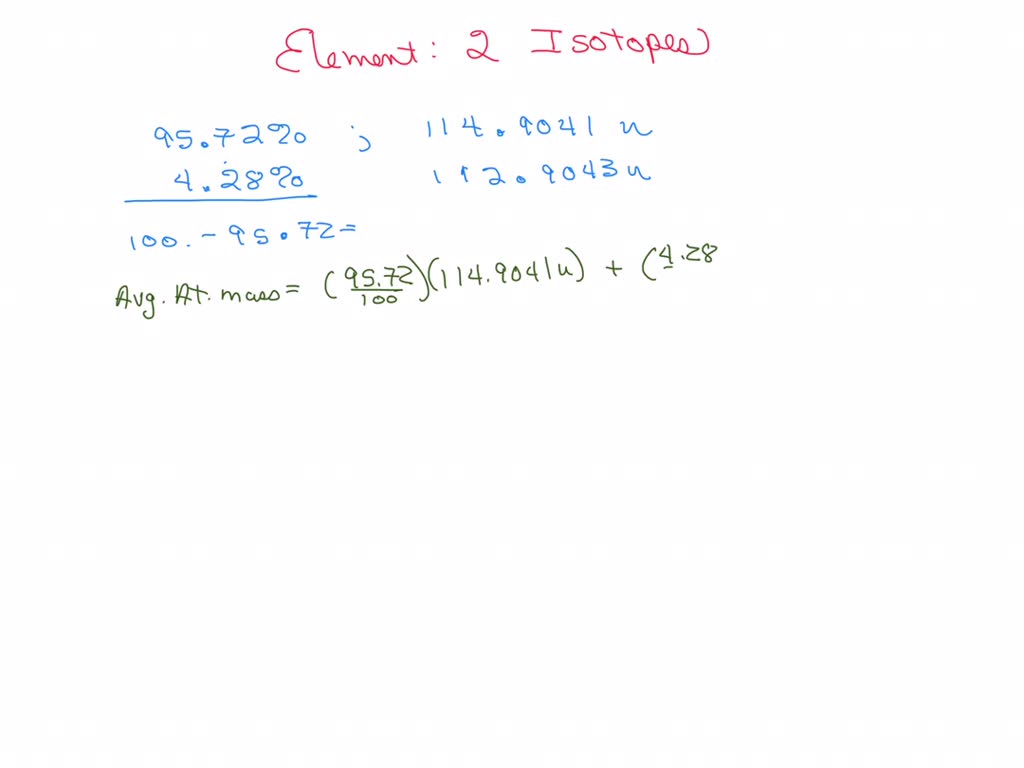 Element: 2 Isotopes
95.72% ; 114.9041 u
4.28% 112.9043 u
100. - 95.72 =
Avg. At. mass = (95.72/100)(114.9041u) + (4.28